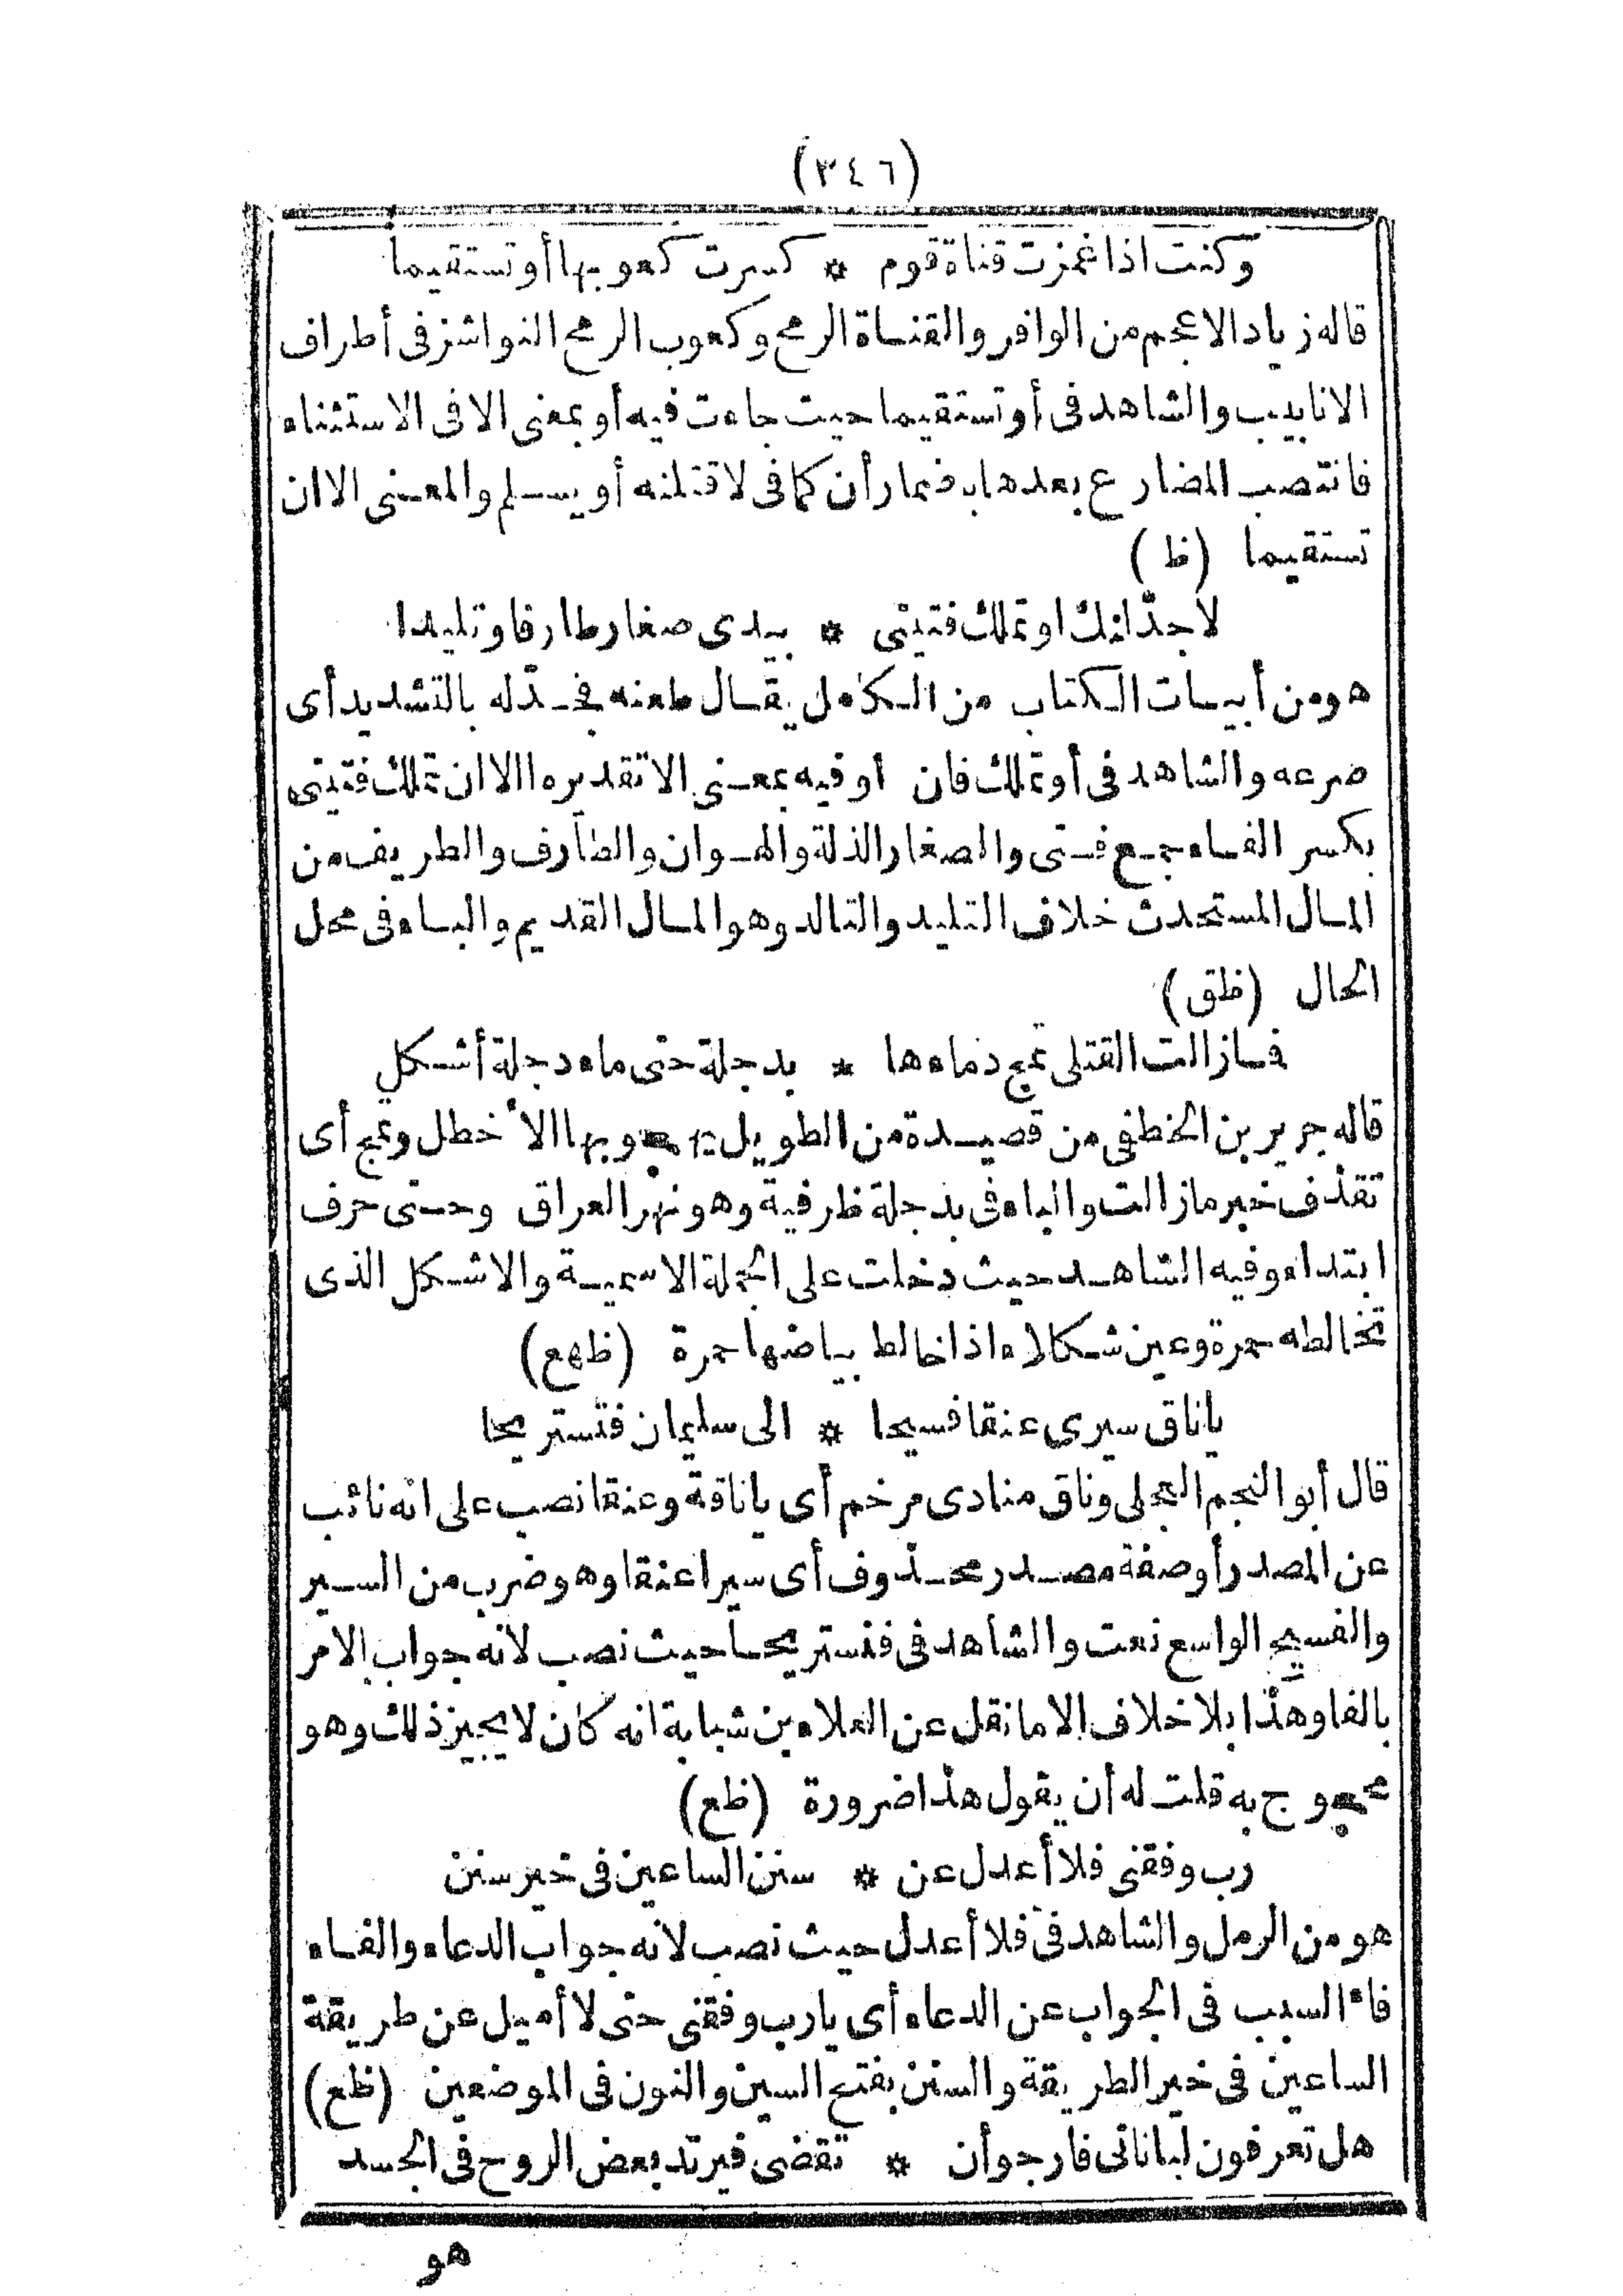 (٣٤٦)
وكنت اذا غمزت قناة قوم * كسرت كعوبها أو تستقيما
قاله زياد الاعجم من الوافر والقناة الرمح وكعوب الرمح النواشز فى أطراف
الانابيب والشاهد فى أو تستقيما حيث جاءت فيه أو بمعنى الا فى الاستثناء
فانتصب المضارع بعدها باضمار أن كما فى لاقتلنه أو يسلم والمعنى الا ان
تستقيما (ظ)
لاجدّلنك او تملك فتيتى * بيدى صغار طارفا وتليدا
هو من أبيات الكتاب من الكامل يقال طعنه فجدّله بالتشديد أى
صرعه والشاهد فى أو تملك فان أو فيه بمعنى الا تقديره الا ان تملك فتيتى
بكسر الفاء جمع فتى والصغار الذلة والهوان والطارف والطريف من
المال المستحدث خلاف التليد والتالد وهو المال القديم والباء فى محل
الحال (ظق)
فما زالت القتلى تمج دماءها * بدجلة حتى ماء دجلة أشكل
قاله جرير بن الخطفى من قصيدة من الطويل يهجو بها الأخطل وتمج أى
تقذف خبر ما زالت والباء فى بدجلة ظرفية وهو نهر العراق وحتى حرف
ابتداء وفيه الشاهد حيث دخلت على الجملة الاسمية والاشكل الذى
تخالطه حمرة وعين شكلاء اذا خالط بياضها حمرة (ظهع)
يا ناق سيرى عنقا فسيحا * الى سليمان فنستريحا
قال أبو النجم العجلى وناق منادى مرخم أى يا ناقة وعنقا نصب على انه نائب
عن المصدر أو صفة مصدر محذوف أى سيرا عنقا وهو ضرب من السير
والفسيح الواسع نعت والشاهد فى فنستريحا حيث نصب لانه جواب الامر
بالفا وهذا بلا خلاف الا ما نقل عن العلاء بن شبابة انه كان لا يجيز ذلك وهو
محجوج به قلت له أن يقول هذا ضرورة (ظع)
رب وفقنى فلا أعدل عن * سنن الساعين فى خير سنن
هو من الرمل والشاهد فى فلا أعدل حيث نصب لانه جواب الدعاء والفاء
فاء السبب فى الجواب عن الدعاء أى يا رب وفقنى حتى لا أميل عن طريقة
الساعين فى خير الطريقة والسنن بفتح السين والنون فى الموضعين (ظع)
هل تعرفون لباناتى فارجو أن * تقضى فيرتد بعض الروح فى الجسد
هو